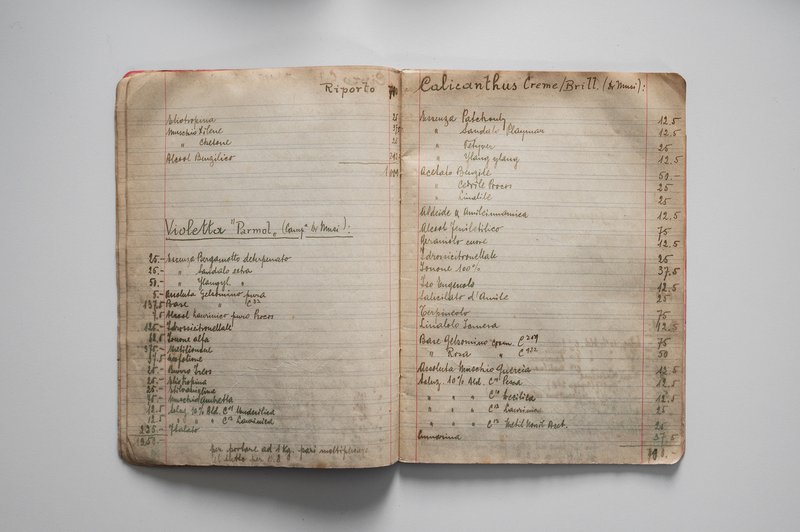 Riporto
Eliotropina 25
Muschio Xilene
" Chetone 25
Alcool Benzilico
Violetta "Parmol" (Camp^e Dr Muri):
25.- Essenza Bergamotto deterpenato
25.- " Sandalo extra
50.- " Ylangyl. "
5.- Assoluta Gelsomino pura
137.5 Base " C³²
7.5 Alcool Laurinico puro Procos
125.- Idrossicitronellale
Ionone alfa
375.- Metilionone
Burro Ireos
25.- Eliotropina
25.- Etilvaniglina
Muschio Ambretta
12.5 Soluz. 10% Ald. C¹¹ Undecilica
12.5 " " " C¹² Laurinica
225.- Ftalato
1250
per portare ad 1 Kg. pari moltiplicare
il tutto per 0.8
Calicanthus Creme/Brill. (Dr Muri):
Essenza Patchouly 12.5
" Sandalo Playmon 12.5
" Vetyver 25
" Ylang ylang 12.5
Acetato Benzile 50.-
" Cedrile Procos 25
" Linalile 25
Aldeide α Amilcinnamica 12.5
Alcool Feniletilico 75
Geraniolo cuore 12.5
Idrossicitronellale 25
Ionone 100% 37.5
Iso Eugenolo 12.5
Salicilato d'Amile 25
Terpineolo 75
Linalolo 12.5
Base Gelsomino comm. C²⁰⁹ 75
" Rosa " C¹³² 50
Assoluta Muschio Quercia 12.5
Soluz. 10% Ald. C¹⁴ Pesca 12.5
" " " C¹⁰ Decilica 12.5
" " " C¹² Laurinica 25
" " " C¹² Metil Nonil Acet. 25
37.5